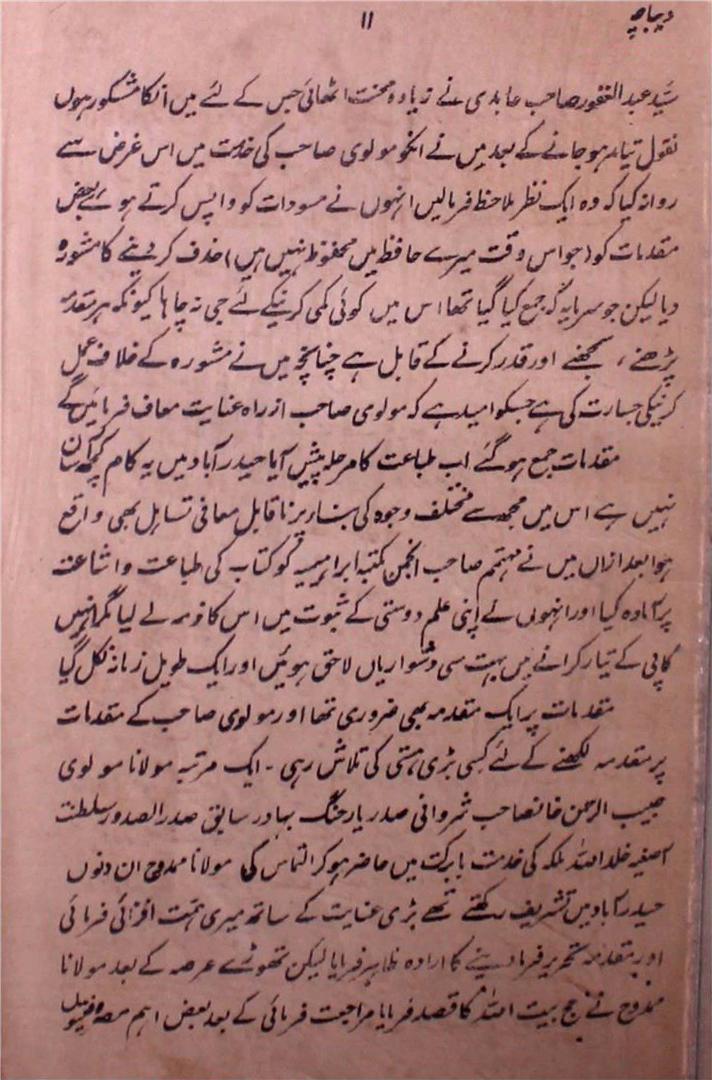 دیباچہ
۱۱
سید عبدالغفور صاحب عابدی نے زیادہ محنت اٹھائی جس کے لئے میں انکا مشکور ہوں
نقول تیار ہو جانے کے بعد میں نے انکو مولوی صاحب کی خدمت میں اس غرض سے
روانہ کیا کہ وہ ایک نظر ملاحظہ فرمالیں انہوں نے مسودات کو واپس کرتے ہوئے بعض
مقدمات کو (جو اس وقت میرے حافظہ میں محفوظ نہیں ہیں) حذف کر دینے کا مشورہ
دیا لیکن جو سرمایہ کہ جمع کیا گیا تھا اس میں کوئی کمی کرنیکے لئے جی نہ چاہا کیونکہ ہر مقدمہ
پڑھنے، سمجھنے اور قدر کرنے کے قابل ہے چنانچہ میں نے مشورہ کے خلاف عمل
کرنیکی جسارت کی ہے جسکو امید ہے کہ مولوی صاحب از راہ عنایت معاف فرمائیں گے
مقدمات جمع ہو گئے اب طباعت کا مرحلہ پیش آیا حیدرآباد میں یہ کام کچھ آسان
نہیں ہے اس میں مجھ سے مختلف وجوہ کی بناء پر ناقابل معافی تساہل بھی واقع
ہوا بعد ازاں میں نے مہتمم صاحب انجمن مکتبہ ابراہیمیہ کو کتاب کی طباعت و اشاعت
پر آمادہ کیا اور انہوں نے اپنی علم دوستی کے ثبوت میں اس کا ذمہ لے لیا مگر انہیں
کاپی کے تیار کرانے میں بہت سی دشواریاں لاحق ہوئیں اور ایک طویل زمانہ نکل گیا
مقدمات پر ایک مقدمہ بھی ضروری تھا اور مولوی صاحب کے مقدمات
پر مقدمہ لکھنے کے لئے کسی بڑی ہستی کی تلاش رہی ۔ ایک مرتبہ مولانا مولوی
حبیب الرحمن خانصاحب شروانی صدر یار جنگ بہادر سابق صدر الصدور سلطنت
آصفیہ خلد اللہ ملکہ کی خدمت بابرکت میں حاضر ہو کر التماس کی مولانا ممدوح ان دنوں
حیدرآباد میں تشریف رکھتے تھے بڑی عنایت کے ساتھ میری ہمت افزائی فرمائی
اور مقدمہ تحریر فرما دینے کا ارادہ ظاہر فرمایا لیکن تھوڑے عرصہ کے بعد مولانا
ممدوح نے حج بیت اللہ کا قصد فرمایا مراجعت فرمائی کے بعد بعض اہم مصروفیتوں